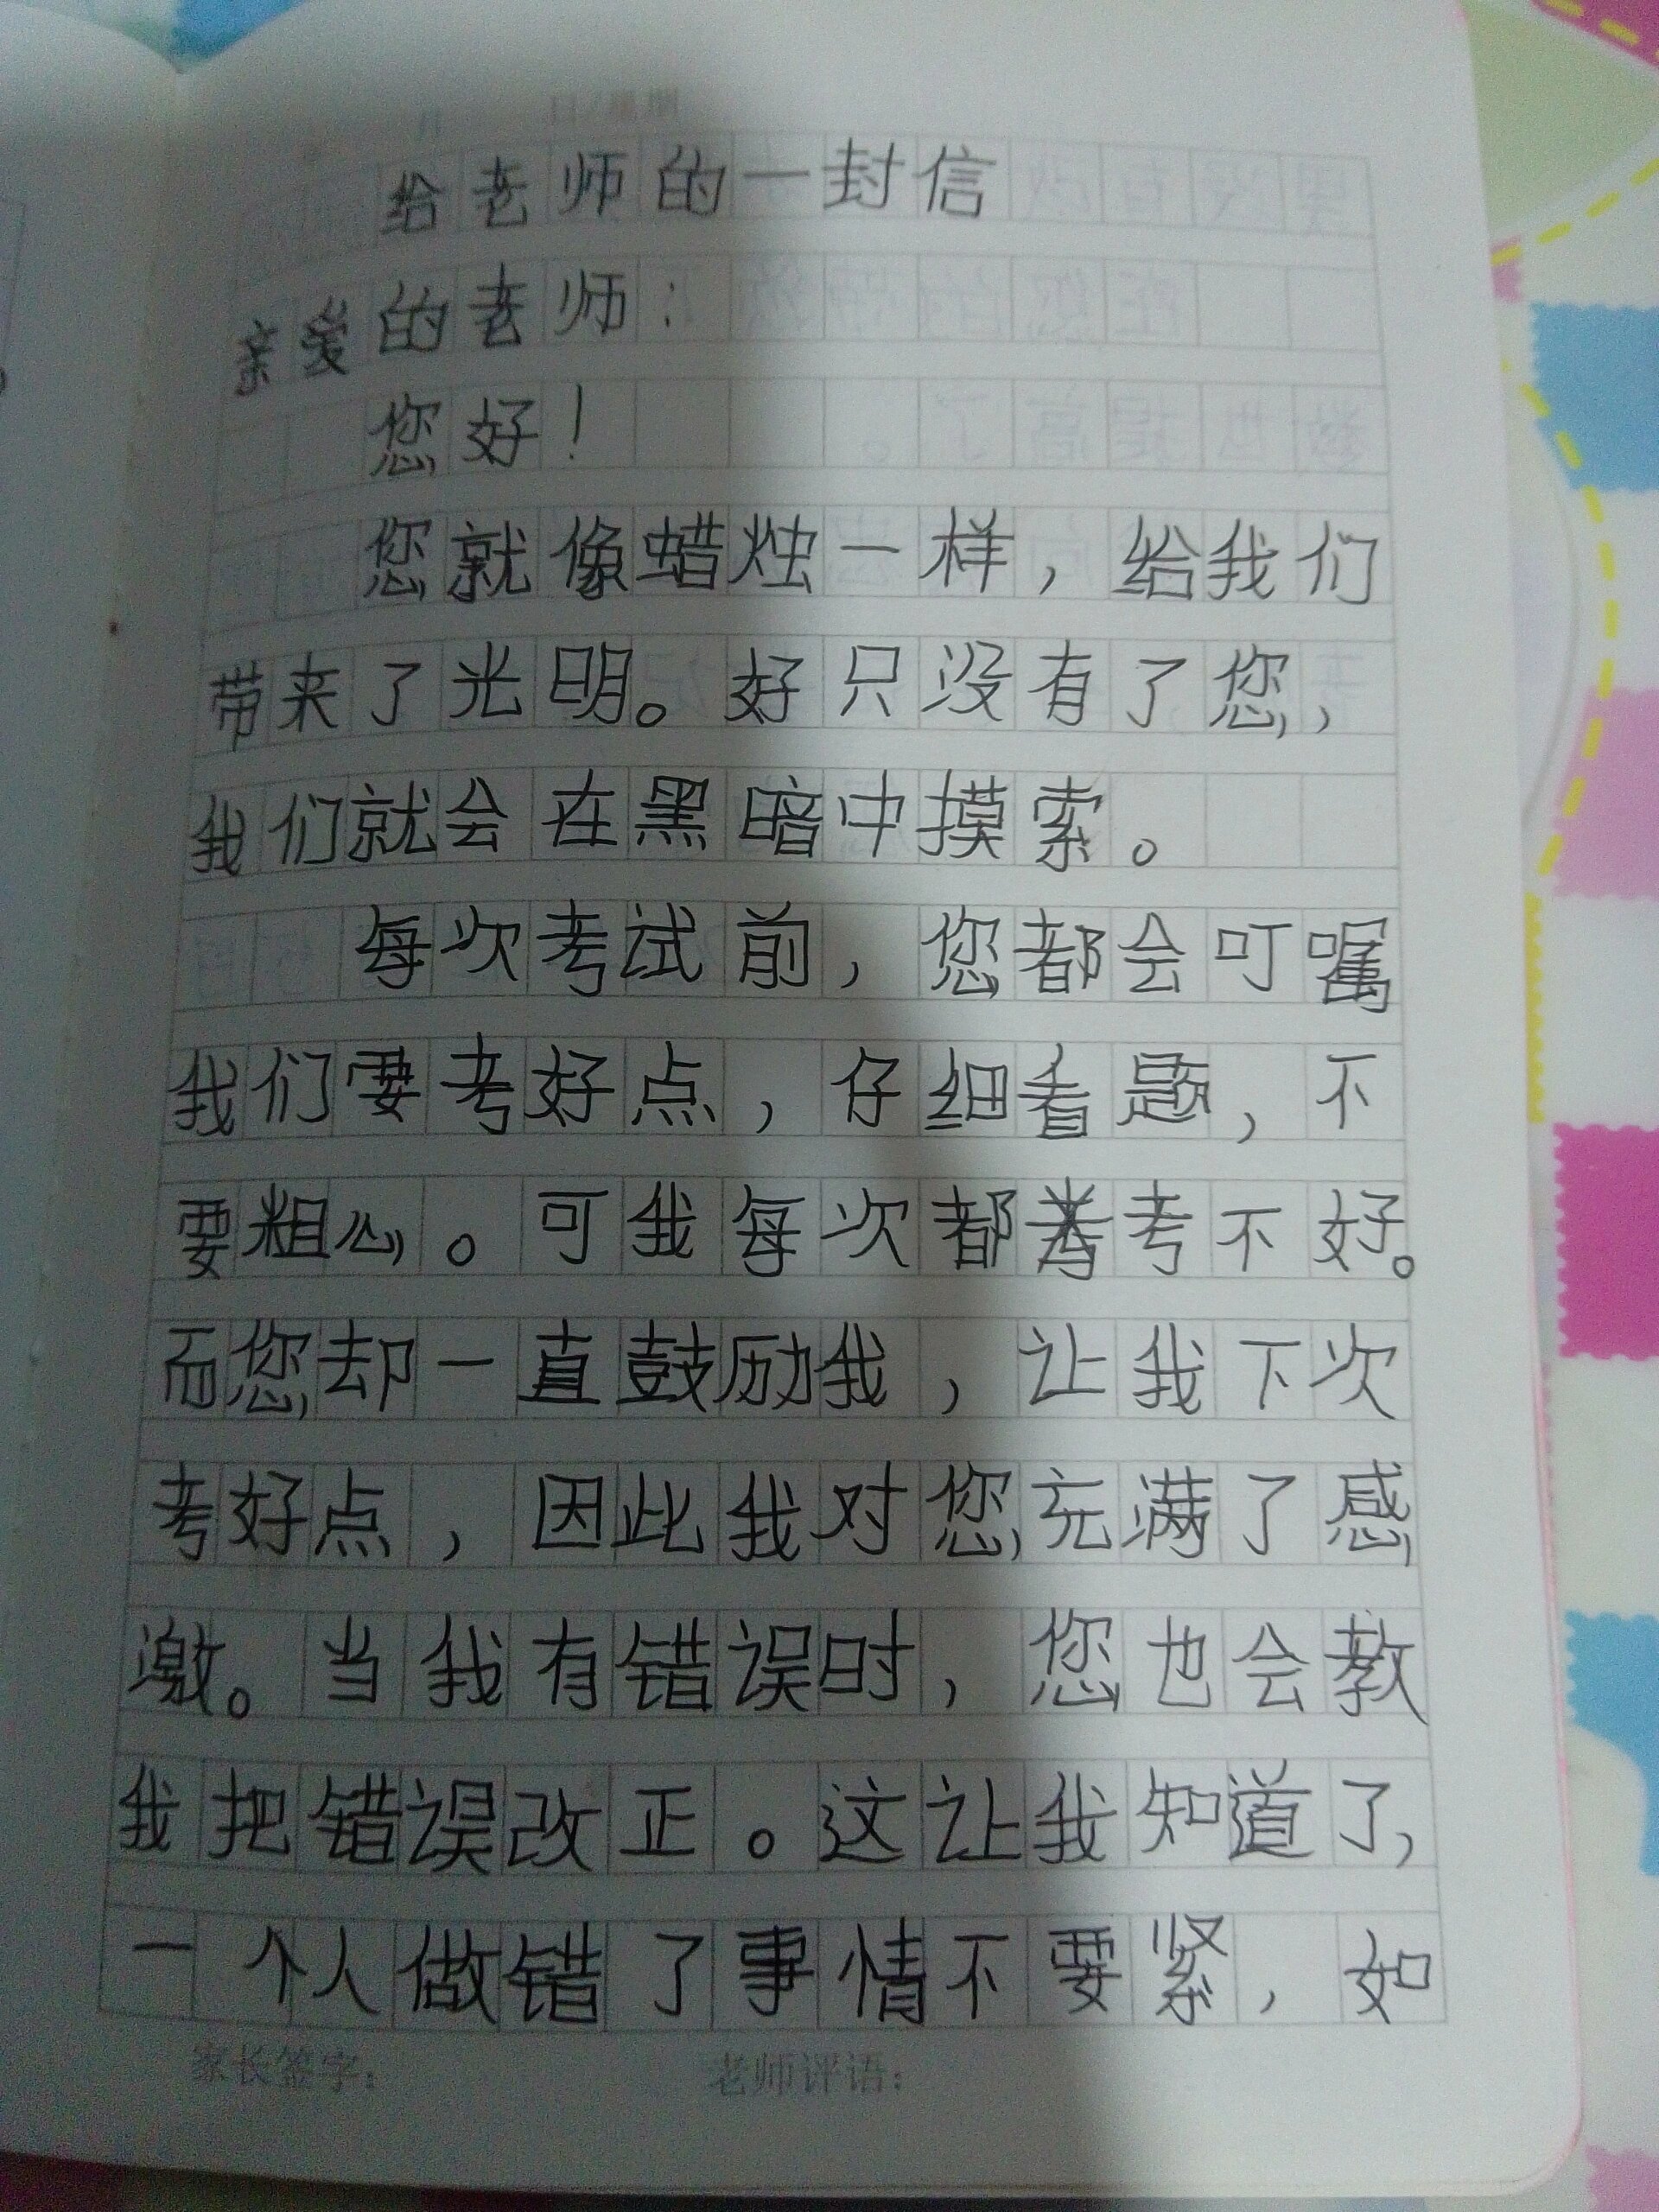 日/星期
给老师的一封信
亲爱的老师：
您好！
您就像蜡烛一样，给我们
带来了光明。好只没有了您，
我们就会在黑暗中摸索。
每次考试前，您都会叮嘱
我们要考好点，仔细看题，不
要粗心。可我每次都考不好。
而您却一直鼓励我，让我下次
考好点，因此我对您充满了感
激。当我有错误时，您也会教
我把错误改正。这让我知道了，
一个人做错了事情不要紧，如
家长签字： 老师评语：